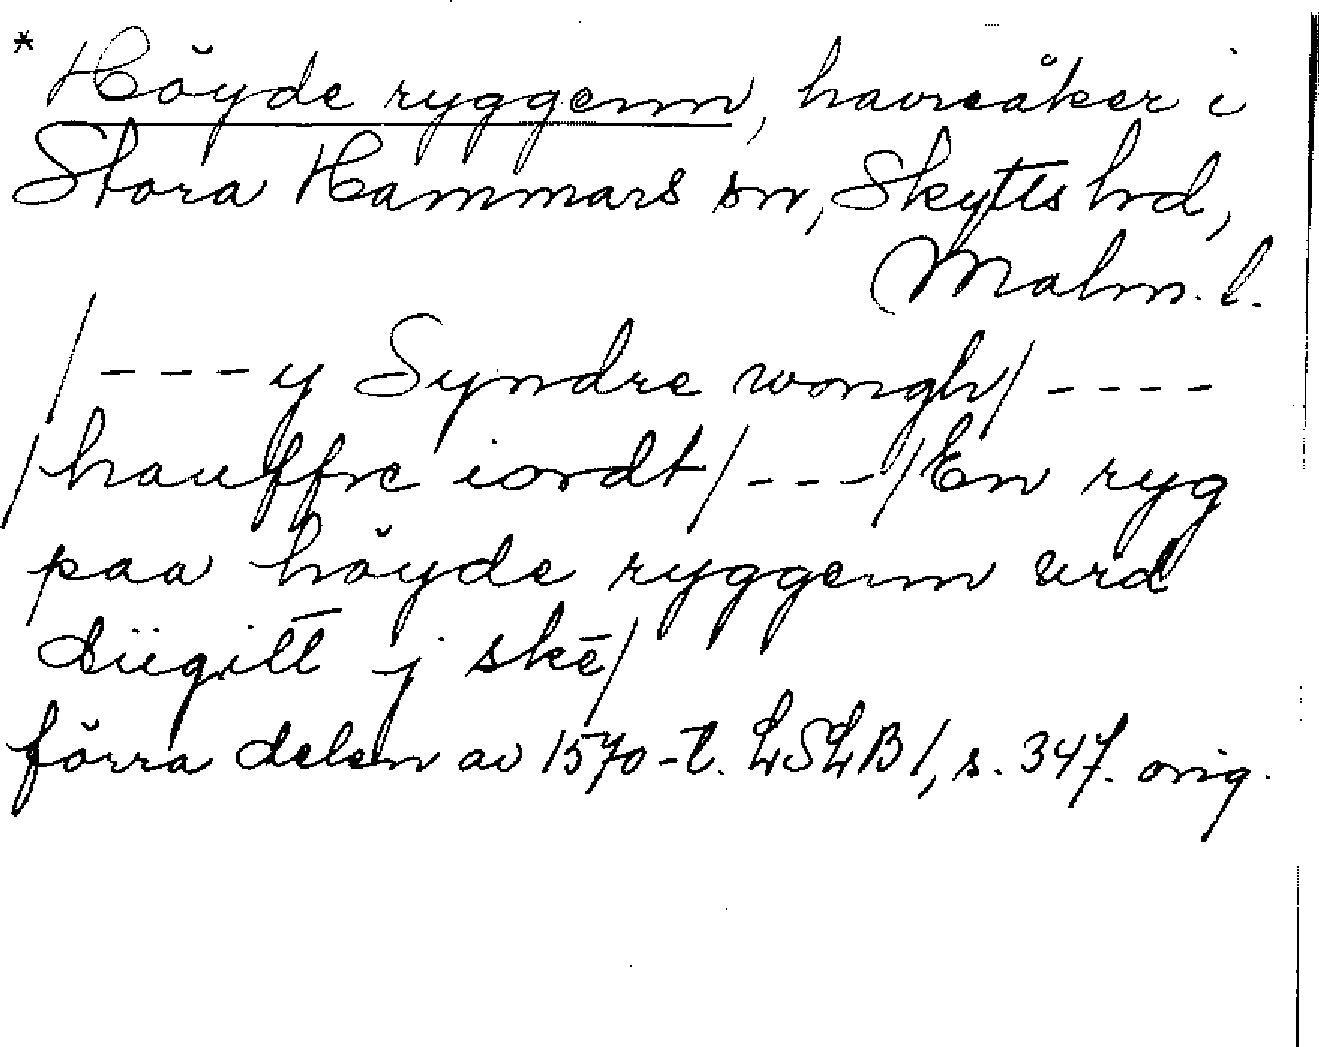 * Höyde ryggenn, havreåker i
Stora Hammars sn, Skytts hrd,
Malm. l.
/---y Syndre wongh/----
/hauffre iordt/---/En ryg
paa höyde ryggenn verd
diigitt j skē/
förra delen av 1570-t. LSLB 1, s. 347. orig.